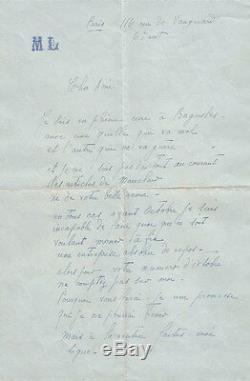 Paris - 116 rue de Vaugirard
6e arrt
ML
Cher Ami
Je suis en pleine cure à Bagnoles
avec une quille qui va mal
et l'autre qui ne va guère
et je ne suis pas du tout au courant
des articles de
ni de votre
en tous cas avant Octobre je suis
incapable de quoi que ce soit
voulant mener à fin
une entreprise absolue de repos -
alors pour votre numéro d'octobre
ne comptez pas sur moi -
Pourquoi vous ferai-je une promesse
que je ne pourrai tenir
mais à la rentrée faites moi
signe -